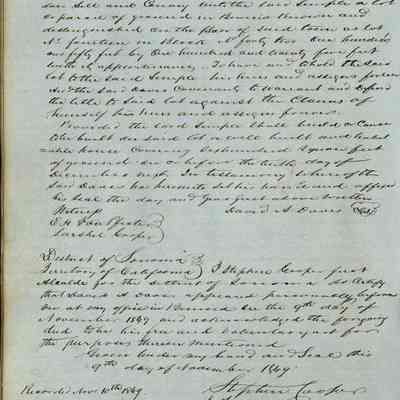 Sell and Convey unto the said Semple a lot
or parcel of ground in Benicia known and
distinguished on the plan of said town as lot
No fourteen in Block No forty two One hundred
and fifty feet by One hundred and twenty five feet
with its appurtenances. To have and to hold the said
lot to the said Semple his heirs and assigns forever
And the said Davis Covenants to warrant and defend
the title to said lot against the Claims of
himself his heirs and assigns forever.
Provided the said Semple shall build or Cause
to be built on said lot a well built and
house Covering hundred square feet
of ground on or before the tenth day of
December next. In testimony whereof the
said Davis has hereunto set his hand and affixed
his seal the day and year first above written
Witness David A Davis
E. H.
Sarshel Cooper
District of Sonoma
Territory of California } I Stephen Cooper first
Alcalde for the district of Sonoma do Certify
that David A Davis appeared personally before
me at my office in Benicia on the 9th day of
November 1849 and acknowledged the foregoing
deed to be his free and voluntary act for
the purposes therein mentioned
Given under my hand and Seal this
9th day of November 1849
Recorded Nov. 10th 1849. Stephen Cooper